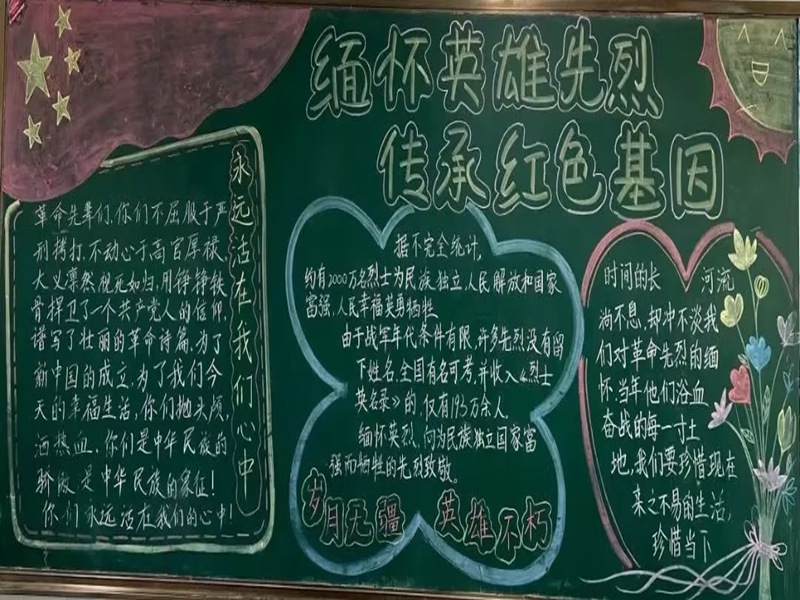 缅怀英雄先烈
传承红色基因
永远活在我们心中
革命先辈们、你们不屈服于严
刑拷打、不动心于高官厚禄、
大义凛然、视死如归、用铮铮铁
骨捍卫了一个共产党人的信仰、
谱写了壮丽的革命诗篇、为了
新中国的成立、为了我们今
天的幸福生活、你们抛头颅、
洒热血、你们是中华民族的
骄傲、是中华民族的象征!
你们永远活在我们的心中!
据不完全统计,
约有2000万名烈士为民族独立、人民解放和国家
富强、人民幸福英勇牺牲
由于战军年代条件有限、许多先烈没有留
下姓名、全国有名可考、并收入《烈士
英名录》的、仅有193万余人。
缅怀英烈、向为民族独立国家富
强而牺牲的先烈致敬。
岁月无疆 英雄不朽
时间的长 河流
淌不息、却冲不淡我
们对革命先烈的缅
怀、当年他们浴血
奋战的每一寸土
地、我们要珍惜现在
来之不易的生活,
珍惜当下